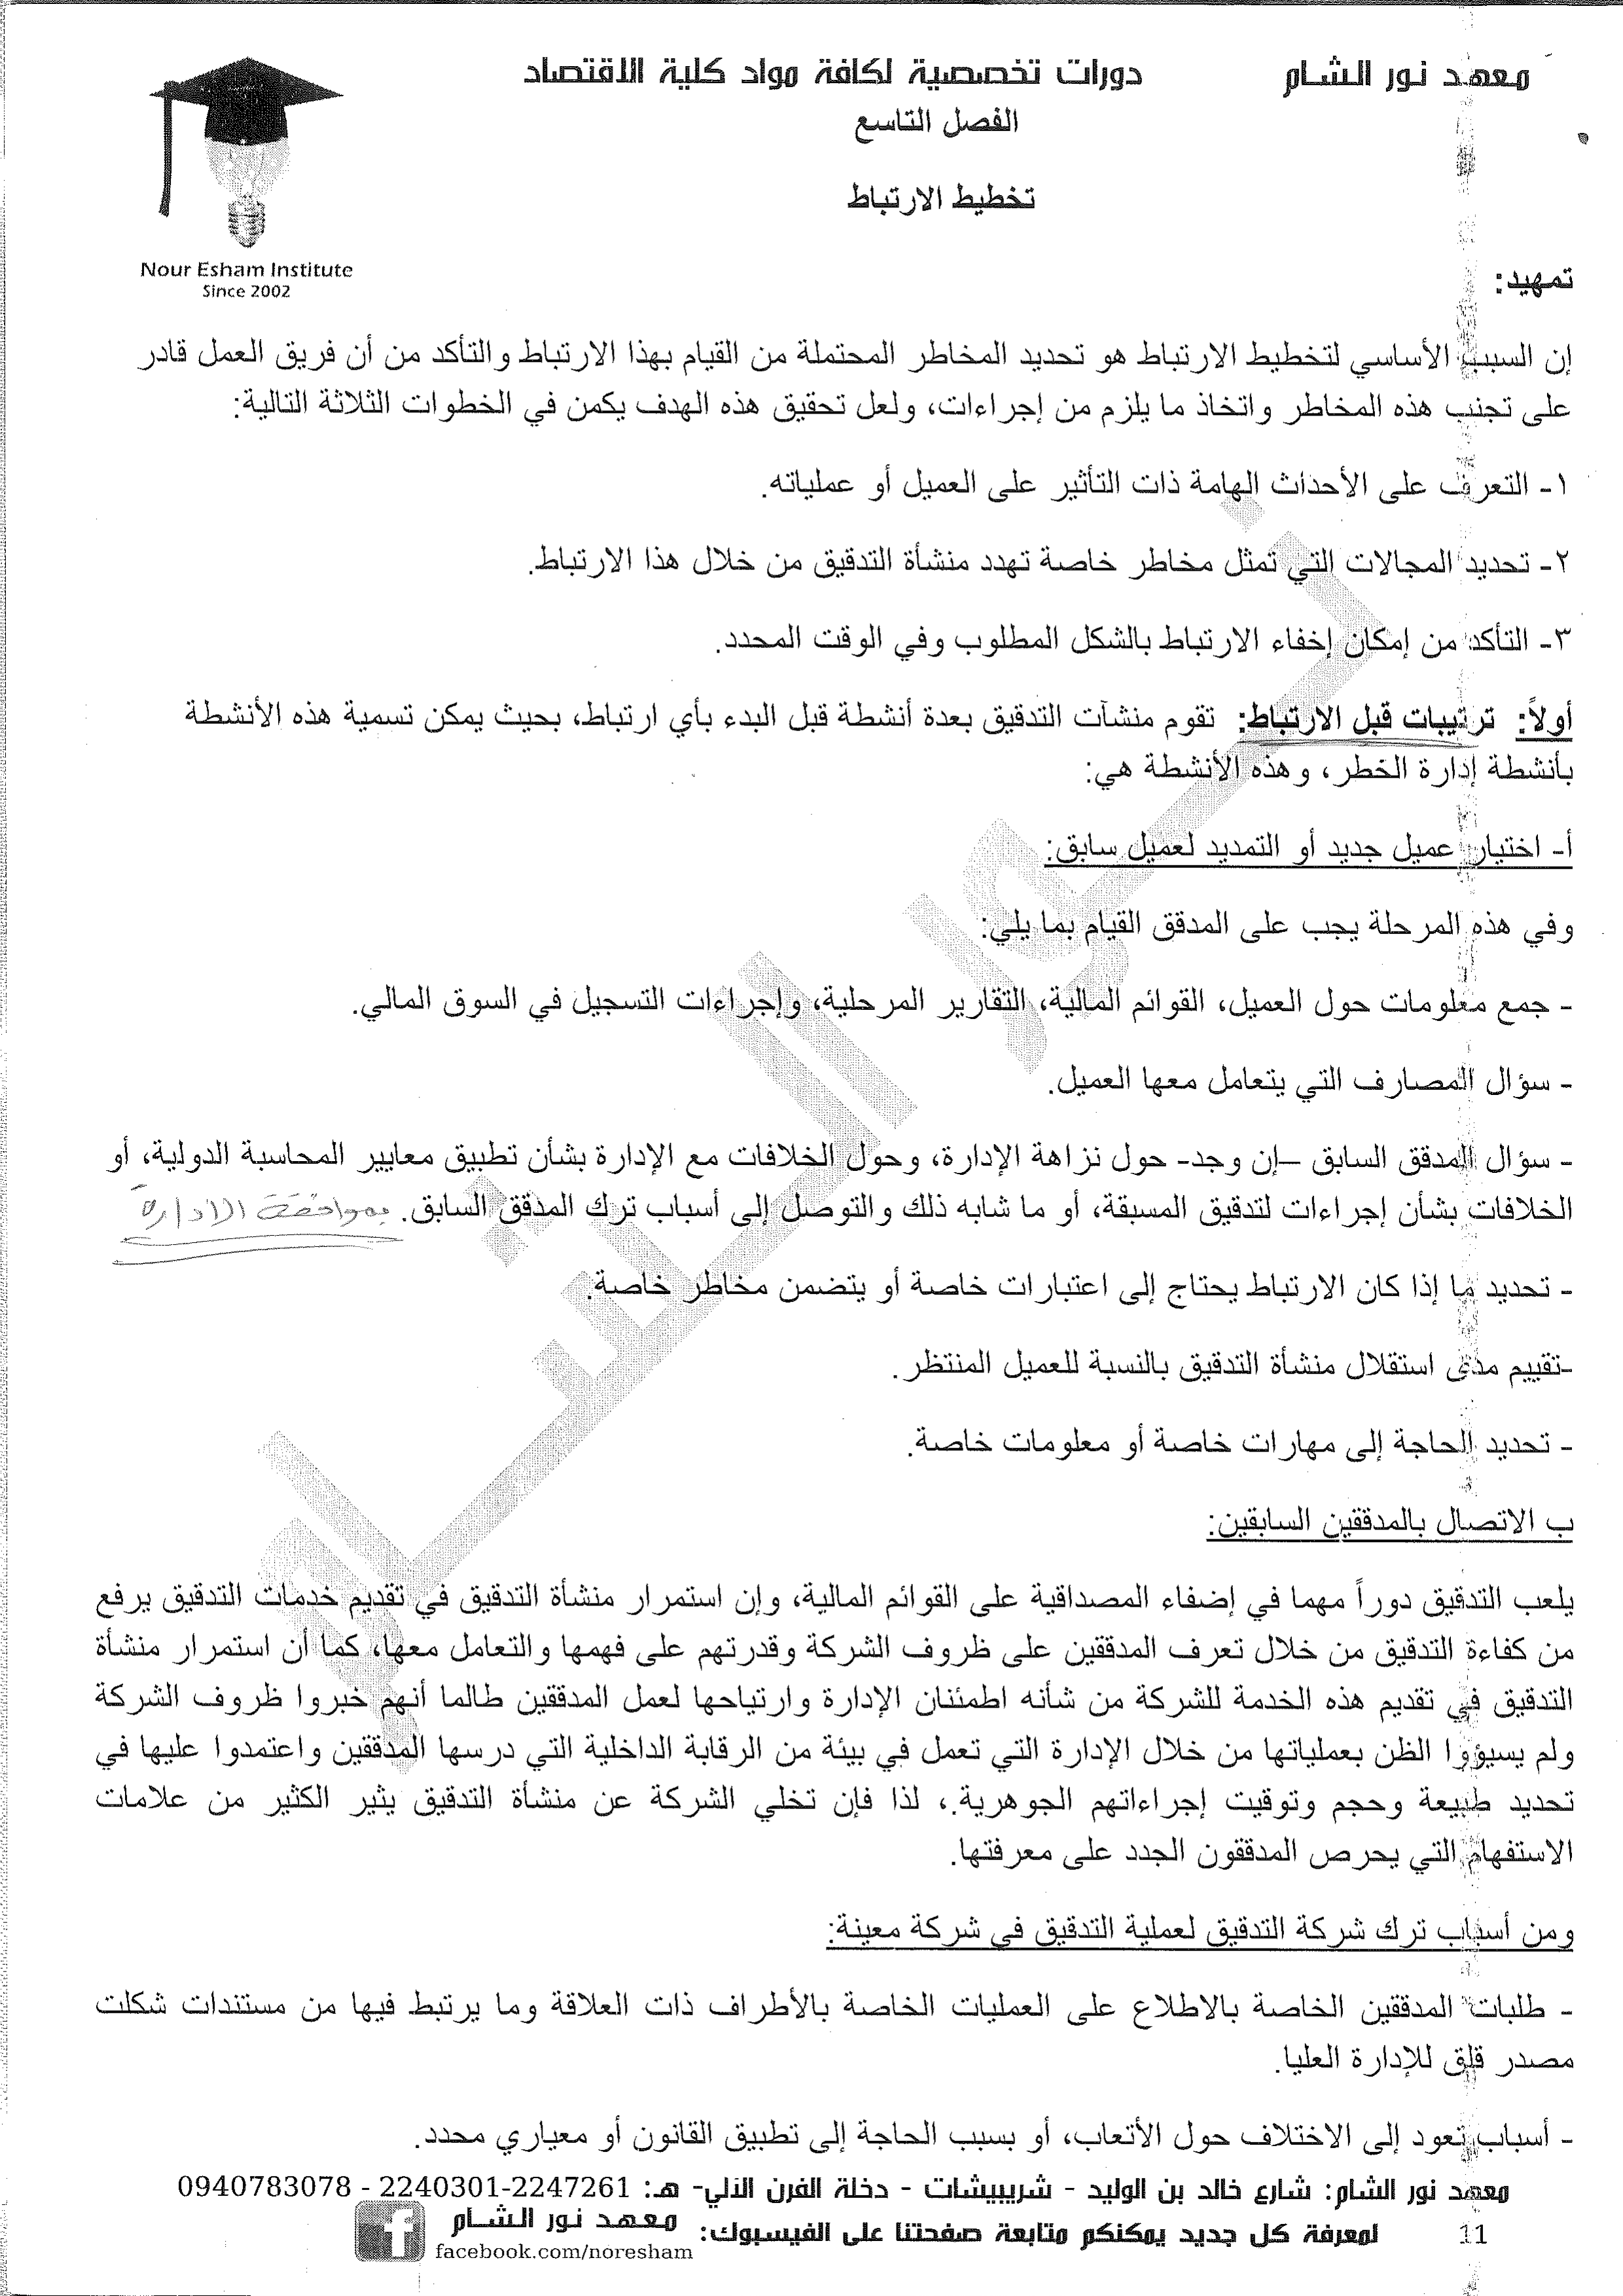 معهد نور الشام
دورات تخصصية لكافة مواد كلية الاقتصاد
Nour Esham Institute
Since 2002
الفصل التاسع
تخطيط الارتباط
تمهيد:
إن السبب الأساسي لتخطيط الارتباط هو تحديد المخاطر المحتملة من القيام بهذا الارتباط والتأكد من أن فريق العمل قادر
على تجنب هذه المخاطر واتخاذ ما يلزم من إجراءات، ولعل تحقيق هذه الهدف يكمن في الخطوات الثلاثة التالية:
١- التعرف على الأحداث الهامة ذات التأثير على العميل أو عملياته.
٢- تحديد المجالات التي تمثل مخاطر خاصة تهدد منشأة التدقيق من خلال هذا الارتباط.
٣- التأكد من إمكان إخفاء الارتباط بالشكل المطلوب وفي الوقت المحدد.
أولاً: ترتيبات قبل الارتباط: تقوم منشآت التدقيق بعدة أنشطة قبل البدء بأي ارتباط، بحيث يمكن تسمية هذه الأنشطة
بأنشطة إدارة الخطر، وهذه الأنشطة هي:
أ- اختيار عميل جديد أو التمديد لعميل سابق:
وفي هذه المرحلة يجب على المدقق القيام بما يلي:
- جمع معلومات حول العميل، القوائم المالية، التقارير المرحلية، وإجراءات التسجيل في السوق المالي.
- سؤال المصارف التي يتعامل معها العميل.
- سؤال المدقق السابق –إن وجد- حول نزاهة الإدارة، وحول الخلافات مع الإدارة بشأن تطبيق معايير المحاسبة الدولية، أو
الخلافات بشأن إجراءات لتدقيق المسبقة، أو ما شابه ذلك والتوصل إلى أسباب ترك المدقق السابق. بموافقة الإدارة
- تحديد ما إذا كان الارتباط يحتاج إلى اعتبارات خاصة أو يتضمن مخاطر خاصة.
-تقييم مدى استقلال منشأة التدقيق بالنسبة للعميل المنتظر.
- تحديد الحاجة إلى مهارات خاصة أو معلومات خاصة.
ب الاتصال بالمدققين السابقين:
يلعب التدقيق دوراً مهما في إضفاء المصداقية على القوائم المالية، وإن استمرار منشأة التدقيق في تقديم خدمات التدقيق يرفع
من كفاءة التدقيق من خلال تعرف المدققين على ظروف الشركة وقدرتهم على فهمها والتعامل معها، كما أن استمرار منشأة
التدقيق في تقديم هذه الخدمة للشركة من شأنه اطمئنان الإدارة وارتياحها لعمل المدققين طالما أنهم خبروا ظروف الشركة
ولم يسيؤوا الظن بعملياتها من خلال الإدارة التي تعمل في بيئة من الرقابة الداخلية التي درسها المدققين واعتمدوا عليها في
تحديد طبيعة وحجم وتوقيت إجراءاتهم الجوهرية.، لذا فإن تخلي الشركة عن منشأة التدقيق يثير الكثير من علامات
الاستفهام التي يحرص المدققون الجدد على معرفتها.
ومن أسباب ترك شركة التدقيق لعملية التدقيق في شركة معينة:
- طلبات المدققين الخاصة بالاطلاع على العمليات الخاصة بالأطراف ذات العلاقة وما يرتبط فيها من مستندات شكلت
مصدر قلق للإدارة العليا.
- أسباب تعود إلى الاختلاف حول الأتعاب، أو بسبب الحاجة إلى تطبيق القانون أو معياري محدد.
معهد نور الشام: شارع خالد بن الوليد - شريبيشات - دخلة الفرن الآلي- هـ: 2247261-2240301 - 0940783078
لمعرفة كل جديد يمكنكم متابعة صفحتنا على الفيسبوك: معهد نور الشام
facebook.com/noresham
11
نور الشام